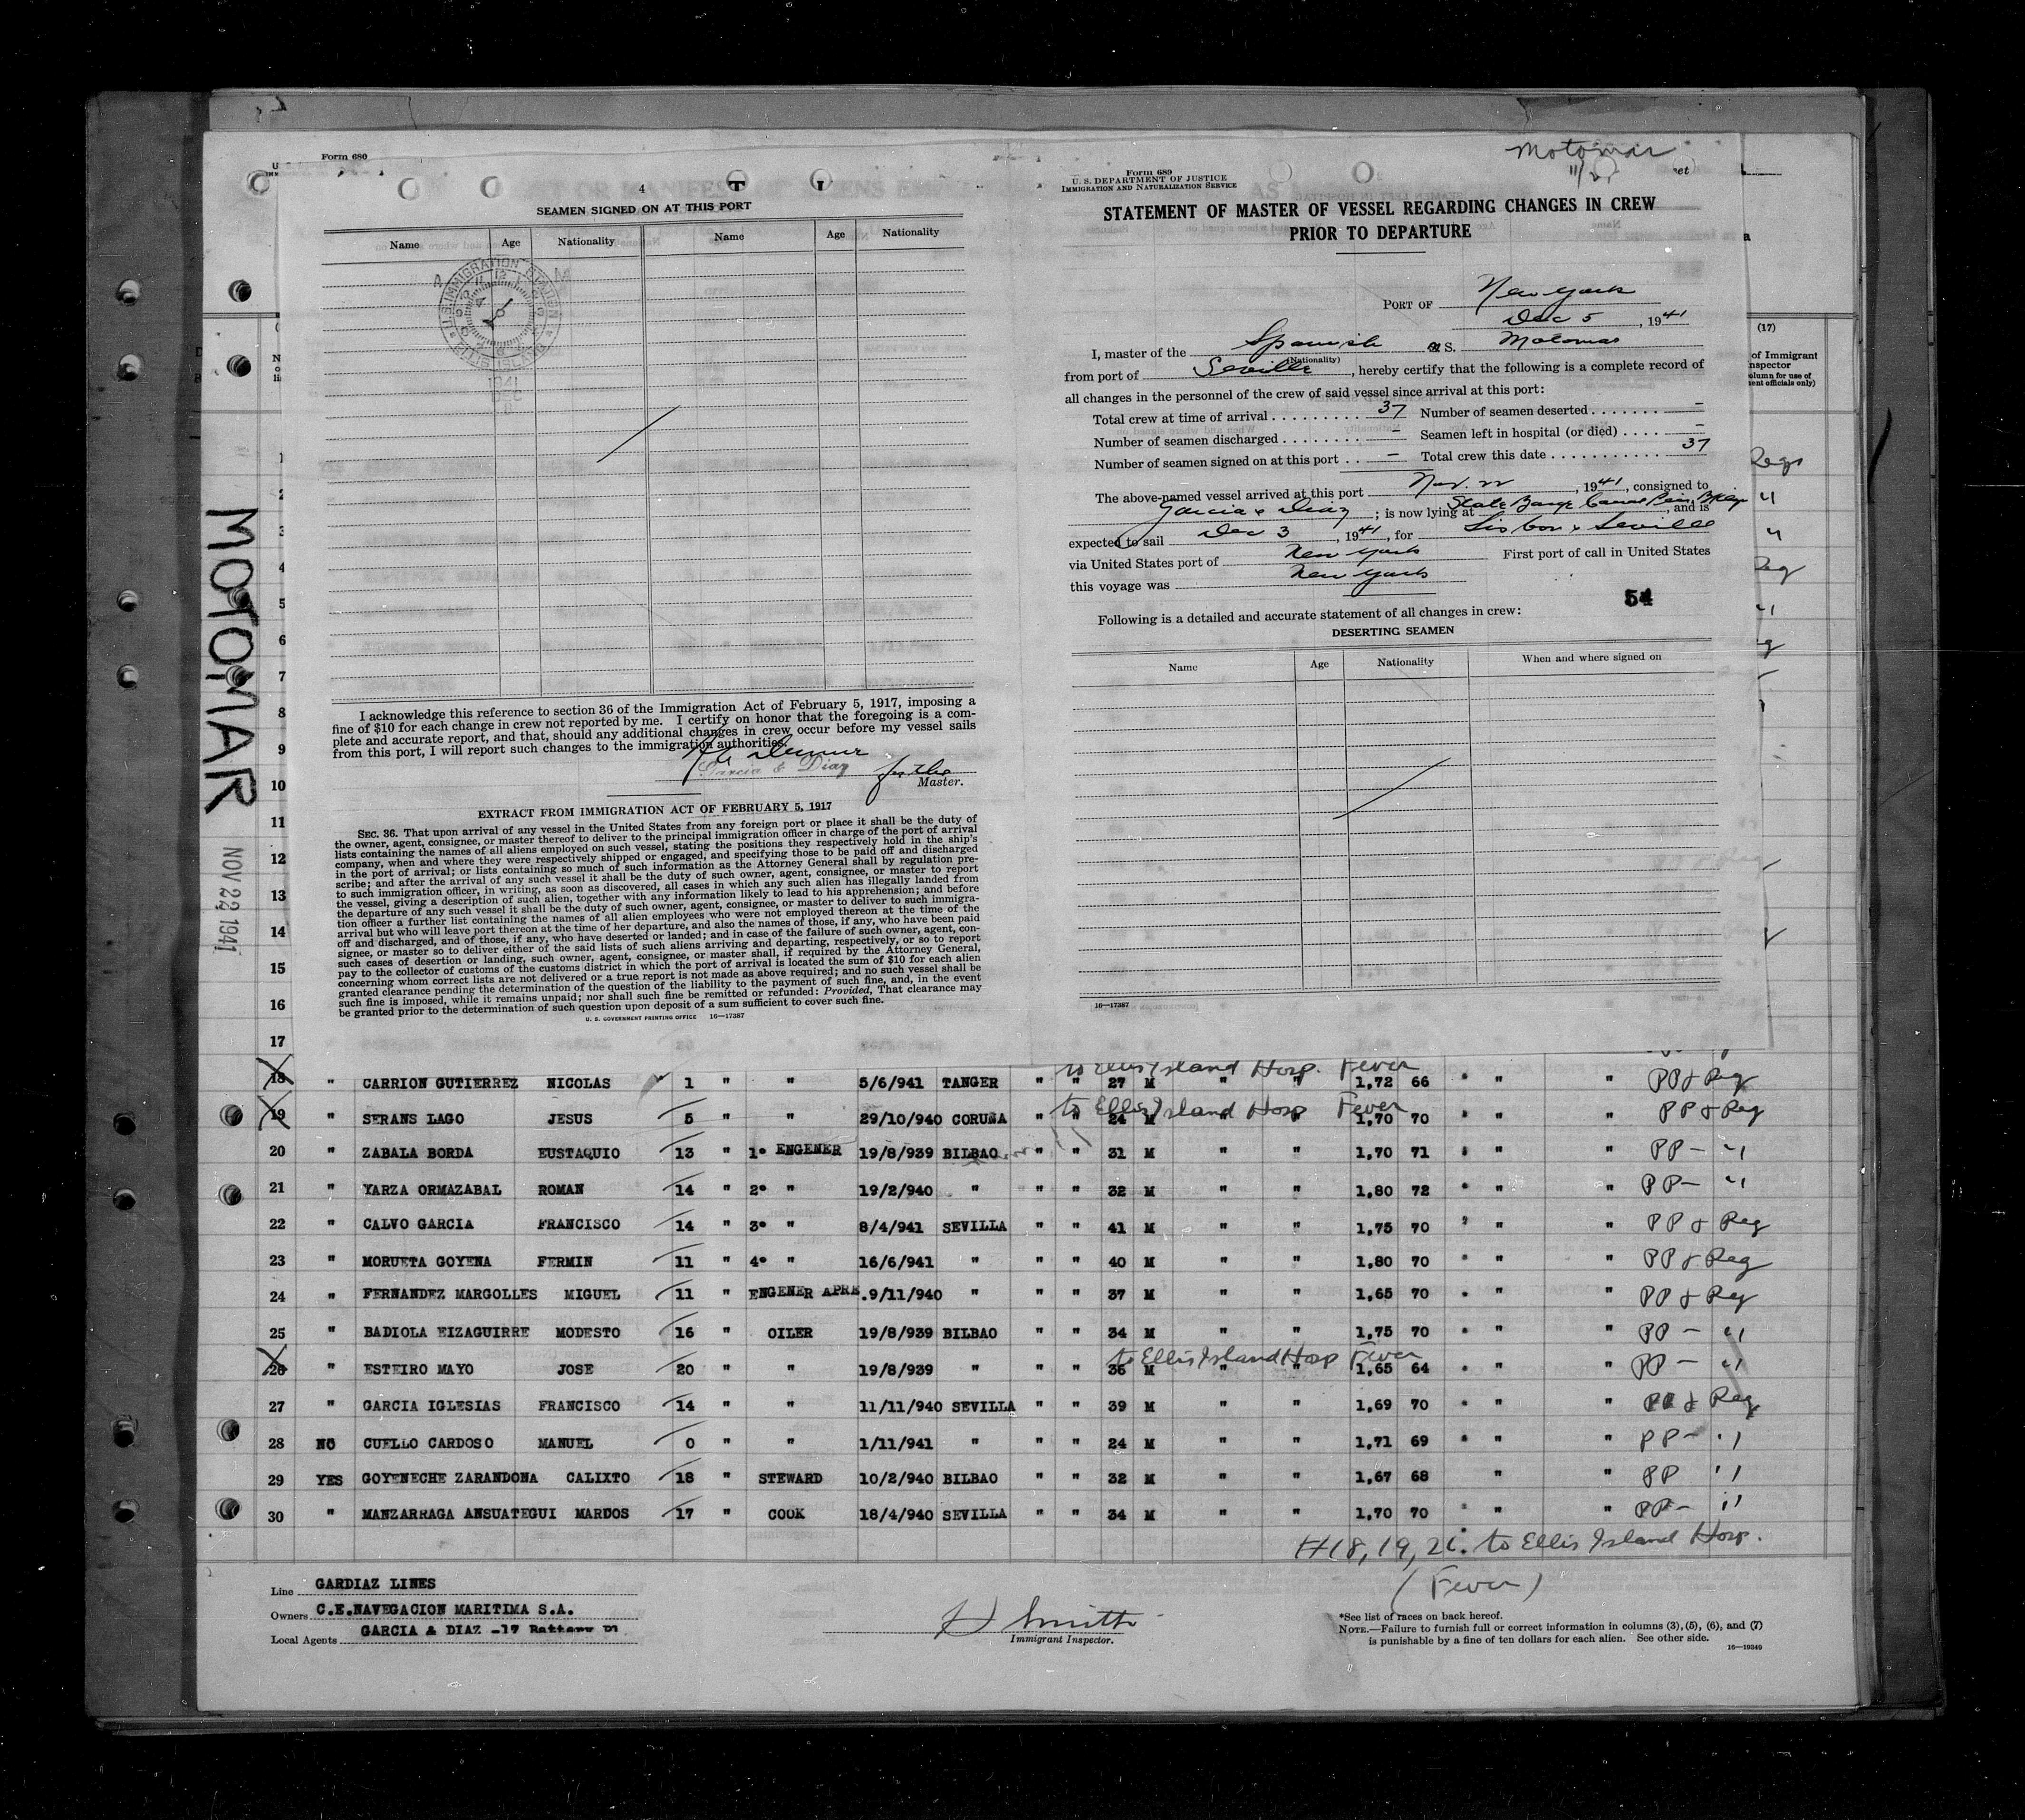 Form 680
4
SEAMEN SIGNED ON AT THIS PORT
Name Age Nationality Name Age Nationality
U.S. IMMIGRATION
ELLIS ISLAND
1941
DEC
I acknowledge this reference to section 36 of the Immigration Act of February 5, 1917, imposing a
fine of $10 for each change in crew not reported by me. I certify on honor that the foregoing is a com-
plete and accurate report, and that, should any additional changes in crew occur before my vessel sails
from this port, I will report such changes to the immigration authorities.
Garcia & Diaz for the
Master.
EXTRACT FROM IMMIGRATION ACT OF FEBRUARY 5, 1917
SEC. 36. That upon arrival of any vessel in the United States from any foreign port or place it shall be the duty of
the owner, agent, consignee, or master thereof to deliver to the principal immigration officer in charge of the port of arrival
lists containing the names of all aliens employed on such vessel, stating the positions they respectively hold in the ship's
company, when and where they were respectively shipped or engaged, and specifying those to be paid off and discharged
in the port of arrival; or lists containing so much of such information as the Attorney General shall by regulation pre-
scribe; and after the arrival of any such vessel it shall be the duty of such owner, agent, consignee, or master to report
to such immigration officer, in writing, as soon as discovered, all cases in which any such alien has illegally landed from
the vessel, giving a description of such alien, together with any information likely to lead to his apprehension; and before
the departure of any such vessel it shall be the duty of such owner, agent, consignee, or master to deliver to such immigra-
tion officer a further list containing the names of all alien employees who were not employed thereon at the time of the
arrival but who will leave port thereon at the time of her departure, and also the names of those, if any, who have been paid
off and discharged, and of those, if any, who have deserted or landed; and in case of the failure of such owner, agent, con-
signee, or master so to deliver either of the said lists of such aliens arriving and departing, respectively, or so to report
such cases of desertion or landing, such owner, agent, consignee, or master shall, if required by the Attorney General,
pay to the collector of customs of the customs district in which the port of arrival is located the sum of $10 for each alien
concerning whom correct lists are not delivered or a true report is not made as above required; and no such vessel shall be
granted clearance pending the determination of the question of the liability to the payment of such fine, and, in the event
such fine is imposed, while it remains unpaid; nor shall such fine be remitted or refunded: Provided, That clearance may
be granted prior to the determination of such question upon deposit of a sum sufficient to cover such fine.
U. S. GOVERNMENT PRINTING OFFICE 16—17387
Motomar
11/22
Form 689
U. S. DEPARTMENT OF JUSTICE
IMMIGRATION AND NATURALIZATION SERVICE
STATEMENT OF MASTER OF VESSEL REGARDING CHANGES IN CREW
PRIOR TO DEPARTURE
PORT OF New York
Dec 5, 1941
I, master of the Spanish S. Motomar
(Nationality)
from port of Seville, hereby certify that the following is a complete record of
all changes in the personnel of the crew of said vessel since arrival at this port:
Total crew at time of arrival 37 Number of seamen deserted –
Number of seamen discharged – Seamen left in hospital (or died) –
Number of seamen signed on at this port – Total crew this date 37
The above-named vessel arrived at this port Nov. 22, 1941, consigned to
Garcia & Diaz; is now lying at State Barge Canal Pier, Bklyn, and is
expected to sail Dec 3, 1941, for Lisbon & Seville
via United States port of New York First port of call in United States
this voyage was New York
54
Following is a detailed and accurate statement of all changes in crew:
DESERTING SEAMEN
Name Age Nationality When and where signed on
16—17387
(17)
of Immigrant
nspector
olumn for use of
ent officials only)
MOTOMAR
NOV 22 1941
1
2
3
4
5
6
7
8
9
10
11
12
13
14
15
16
17
to Ellis Island Hosp. Fever
18 " CARRION GUTIERREZ NICOLAS 1 " " 5/6/941 TANGER " " 27 M " " 1,72 66 " " " PP & Reg
to Ellis Island Hosp Fever
19 " SERANS LAGO JESUS 5 " " 29/10/940 CORUÑA " " 24 M " " 1,70 70 " " PP & Reg
20 " ZABALA BORDA EUSTAQUIO 13 " 1º ENGENER 19/8/939 BILBAO " " 31 M " " 1,70 71 " " " PP – "
21 " YARZA ORMAZABAL ROMAN 14 " 2º " 19/2/940 " " " 32 M " " 1,80 72 " " " PP – "
22 " CALVO GARCIA FRANCISCO 14 " 3º " 8/4/941 SEVILLA " " 41 M " " 1,75 70 " " " PP & Reg
23 " MORUETA GOYENA FERMIN 11 " 4º " 16/6/941 " " " 40 M " " 1,80 70 " " " PP & Reg
24 " FERNANDEZ MARGOLLES MIGUEL 11 " ENGENER APRE. 9/11/940 " " " 37 M " " 1,65 70 " " " PP & Reg
25 " BADIOLA EIZAGUIRRE MODESTO 16 " OILER 19/8/939 BILBAO " " 34 M " " 1,75 70 " " " PP – "
to Ellis Island Hosp Fever
26 " ESTEIRO MAYO JOSE 20 " " 19/8/939 " " " 36 M " " 1,65 64 " " " PP – "
27 " GARCIA IGLESIAS FRANCISCO 14 " " 11/11/940 SEVILLA " " 39 M " " 1,69 70 " " " PP & Reg
28 NO CUELLO CARDOSO MANUEL 0 " " 1/11/941 " " " 24 M " " 1,71 69 " " " PP – "
29 YES GOYENECHE ZARANDONA CALIXTO 18 " STEWARD 10/2/940 BILBAO " " 32 M " " 1,67 68 " " PP "
30 " MANZARRAGA ANSUATEGUI MARDOS 17 " COOK 18/4/940 SEVILLA " " 34 M " " 1,70 70 " " " PP – "
#18, 19, 26. to Ellis Island Hosp.
(Fever)
Line GARDIAZ LINES
Owners C.E.NAVEGACION MARITIMA S.A.
Local Agents GARCIA & DIAZ -17 Battery Pl
H Smith
Immigrant Inspector.
*See list of races on back hereof.
NOTE.—Failure to furnish full or correct information in columns (3), (5), (6), and (7)
is punishable by a fine of ten dollars for each alien. See other side.
16—19349